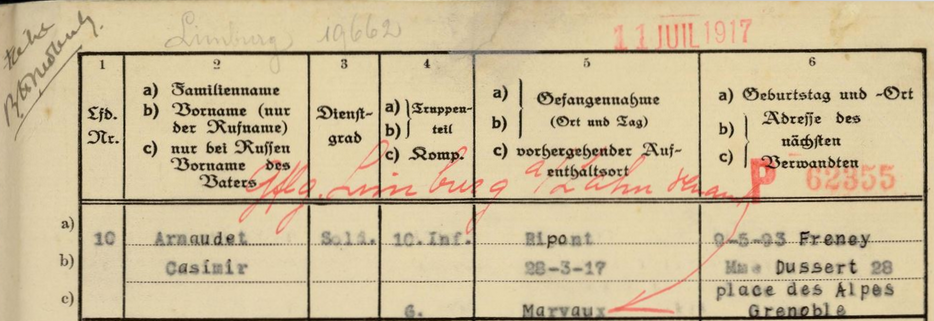 Limburg 19662
11 JUIL 1917
1 2 3 4 5 6
Lfd. Nr.
a) Familienname
b) Vorname (nur der Rufname)
c) nur bei Russen Vorname des Vaters
Dienst-
grad
a) Truppen-
b) teil
c) Komp.
a) Gefangennahme
b) (Ort und Tag)
c) vorhergehender Auf-
enthaltsort
a) Geburtstag und -Ort
b) Adresse des
nächsten
c) Verwandten
Gflg. Limburg a/Lahn
P 62355
a) 10 Arnaudet Sold. 10. Inf. Ripont 9-5-93 Freney
b) Casimir 28-3-17 Mme Dussert 28
c) place des Alpes
G. Marvaux Grenoble